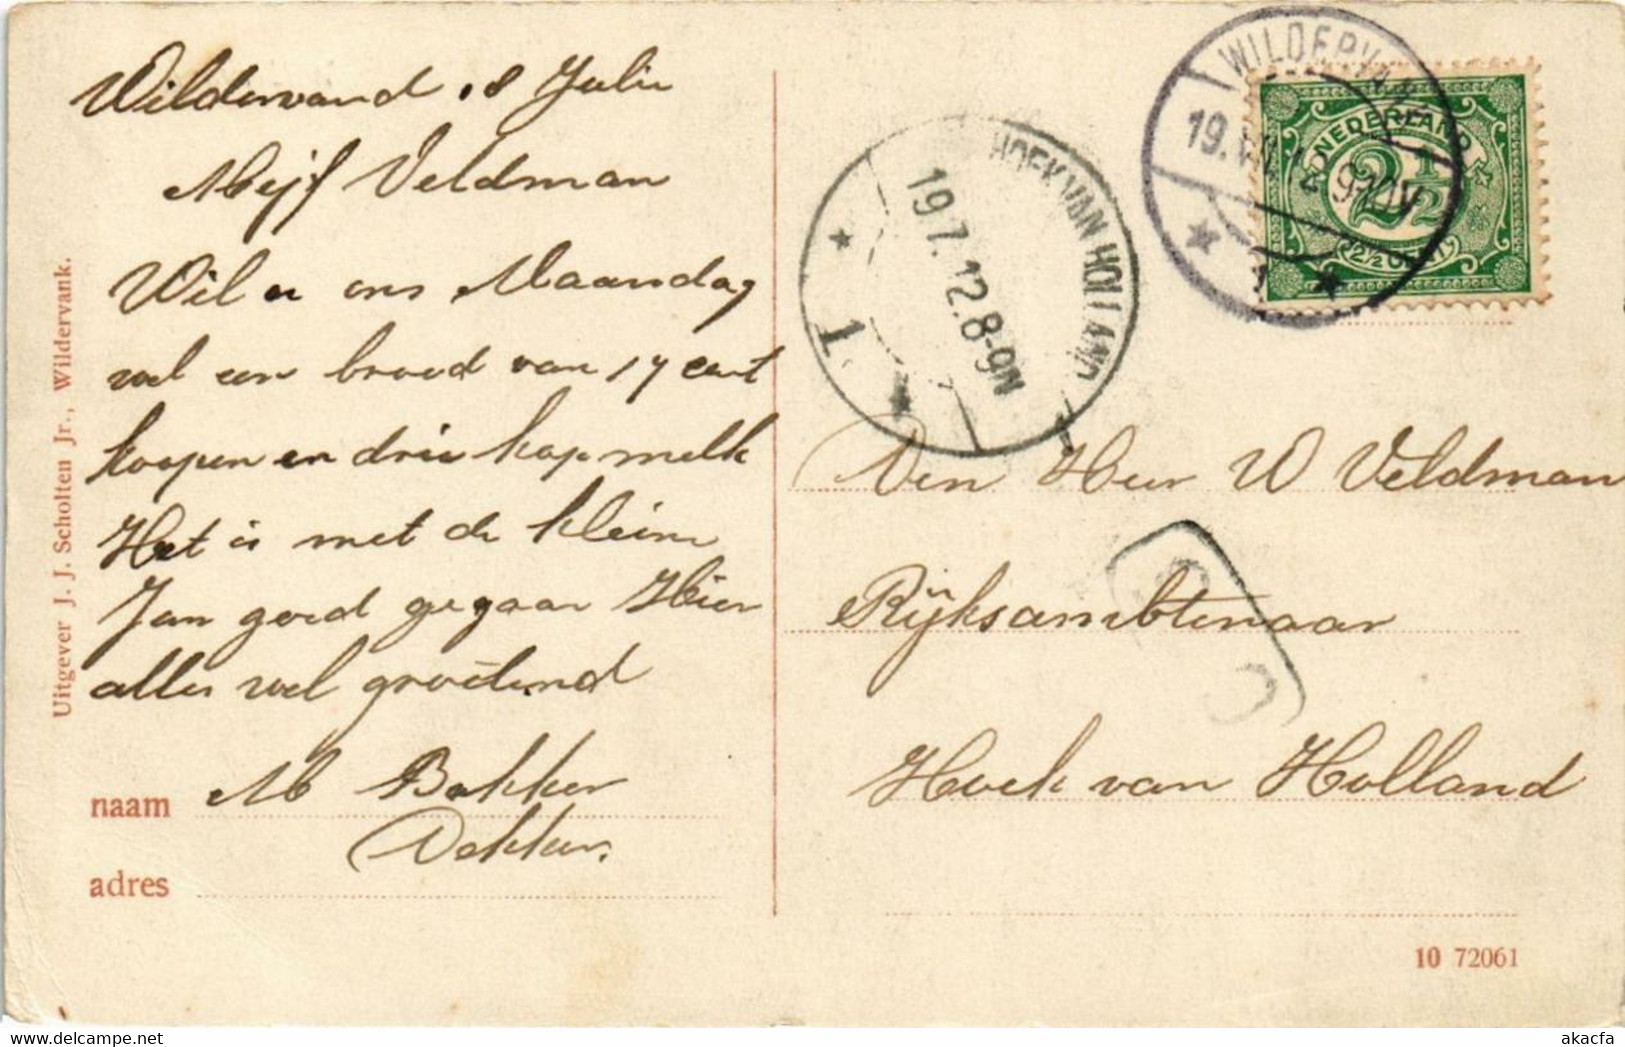 Wildervand 18 Julie
Mejf Veldman
Wil u ons Maandag
wel een brood van 17 cent
koopen en drie kop melk
Het is met de kleine
Jan goed gegaan Hier
alles wel groetend
M Bakker
Dekker.
naam
adres
Uitgever J. J. Scholten Jr., Wildervank.
HOEK VAN HOLLAND
19.7.12.8-9N
1
WILDERVANK
19.VII.12 9-10V
1
NEDERLAND
2½
2½ CENT
Den Heer W Veldman
Rijksambtenaar
Hoek van Holland
10 72061
akpool.co.uk
akacfa